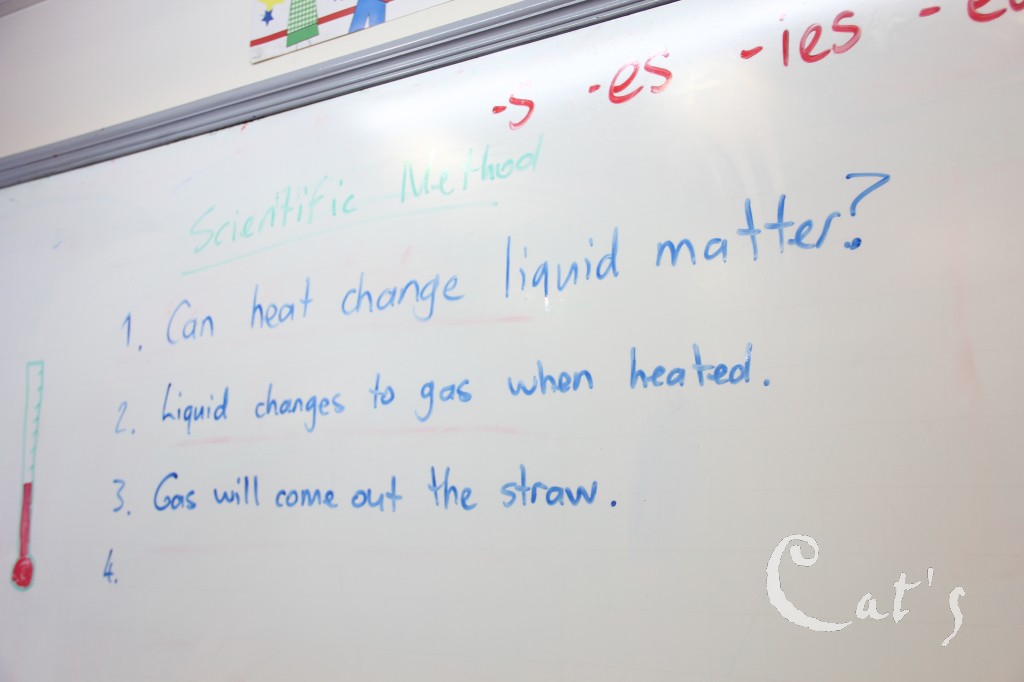 -s -es -ies -
Scientific Method
1. Can heat change liquid matter?
2. Liquid changes to gas when heated.
3. Gas will come out the straw.
4.
Cat's